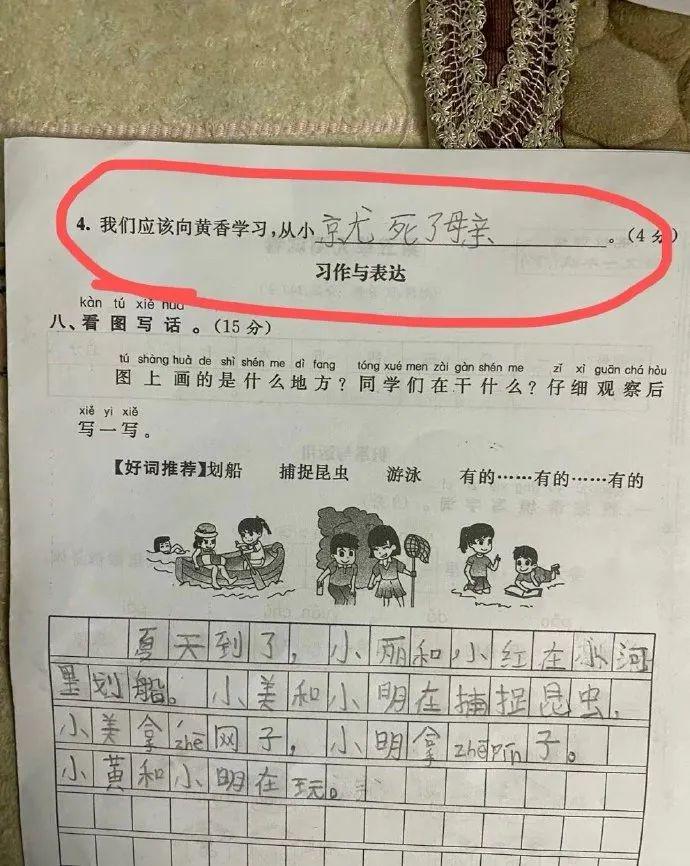 4. 我们应该向黄香学习,从小京尤 死了母亲。(4分)
习作与表达
kàn tú xiě huà
八、看图写话。(15分)
tú shàng huà de shì shén me dì fang tóng xué men zài gàn shén me zǐ xì guān chá hòu
图上画的是什么地方?同学们在干什么?仔细观察后
xiě yi xiě
写一写。
【好词推荐】划船 捕捉昆虫 游泳 有的……有的……有的
夏天到了,小丽和小红在小河
里划船。小美和小明在捕捉昆虫,
小美拿zhē网子,小明拿zhē pín子。
小黄和小明在玩。